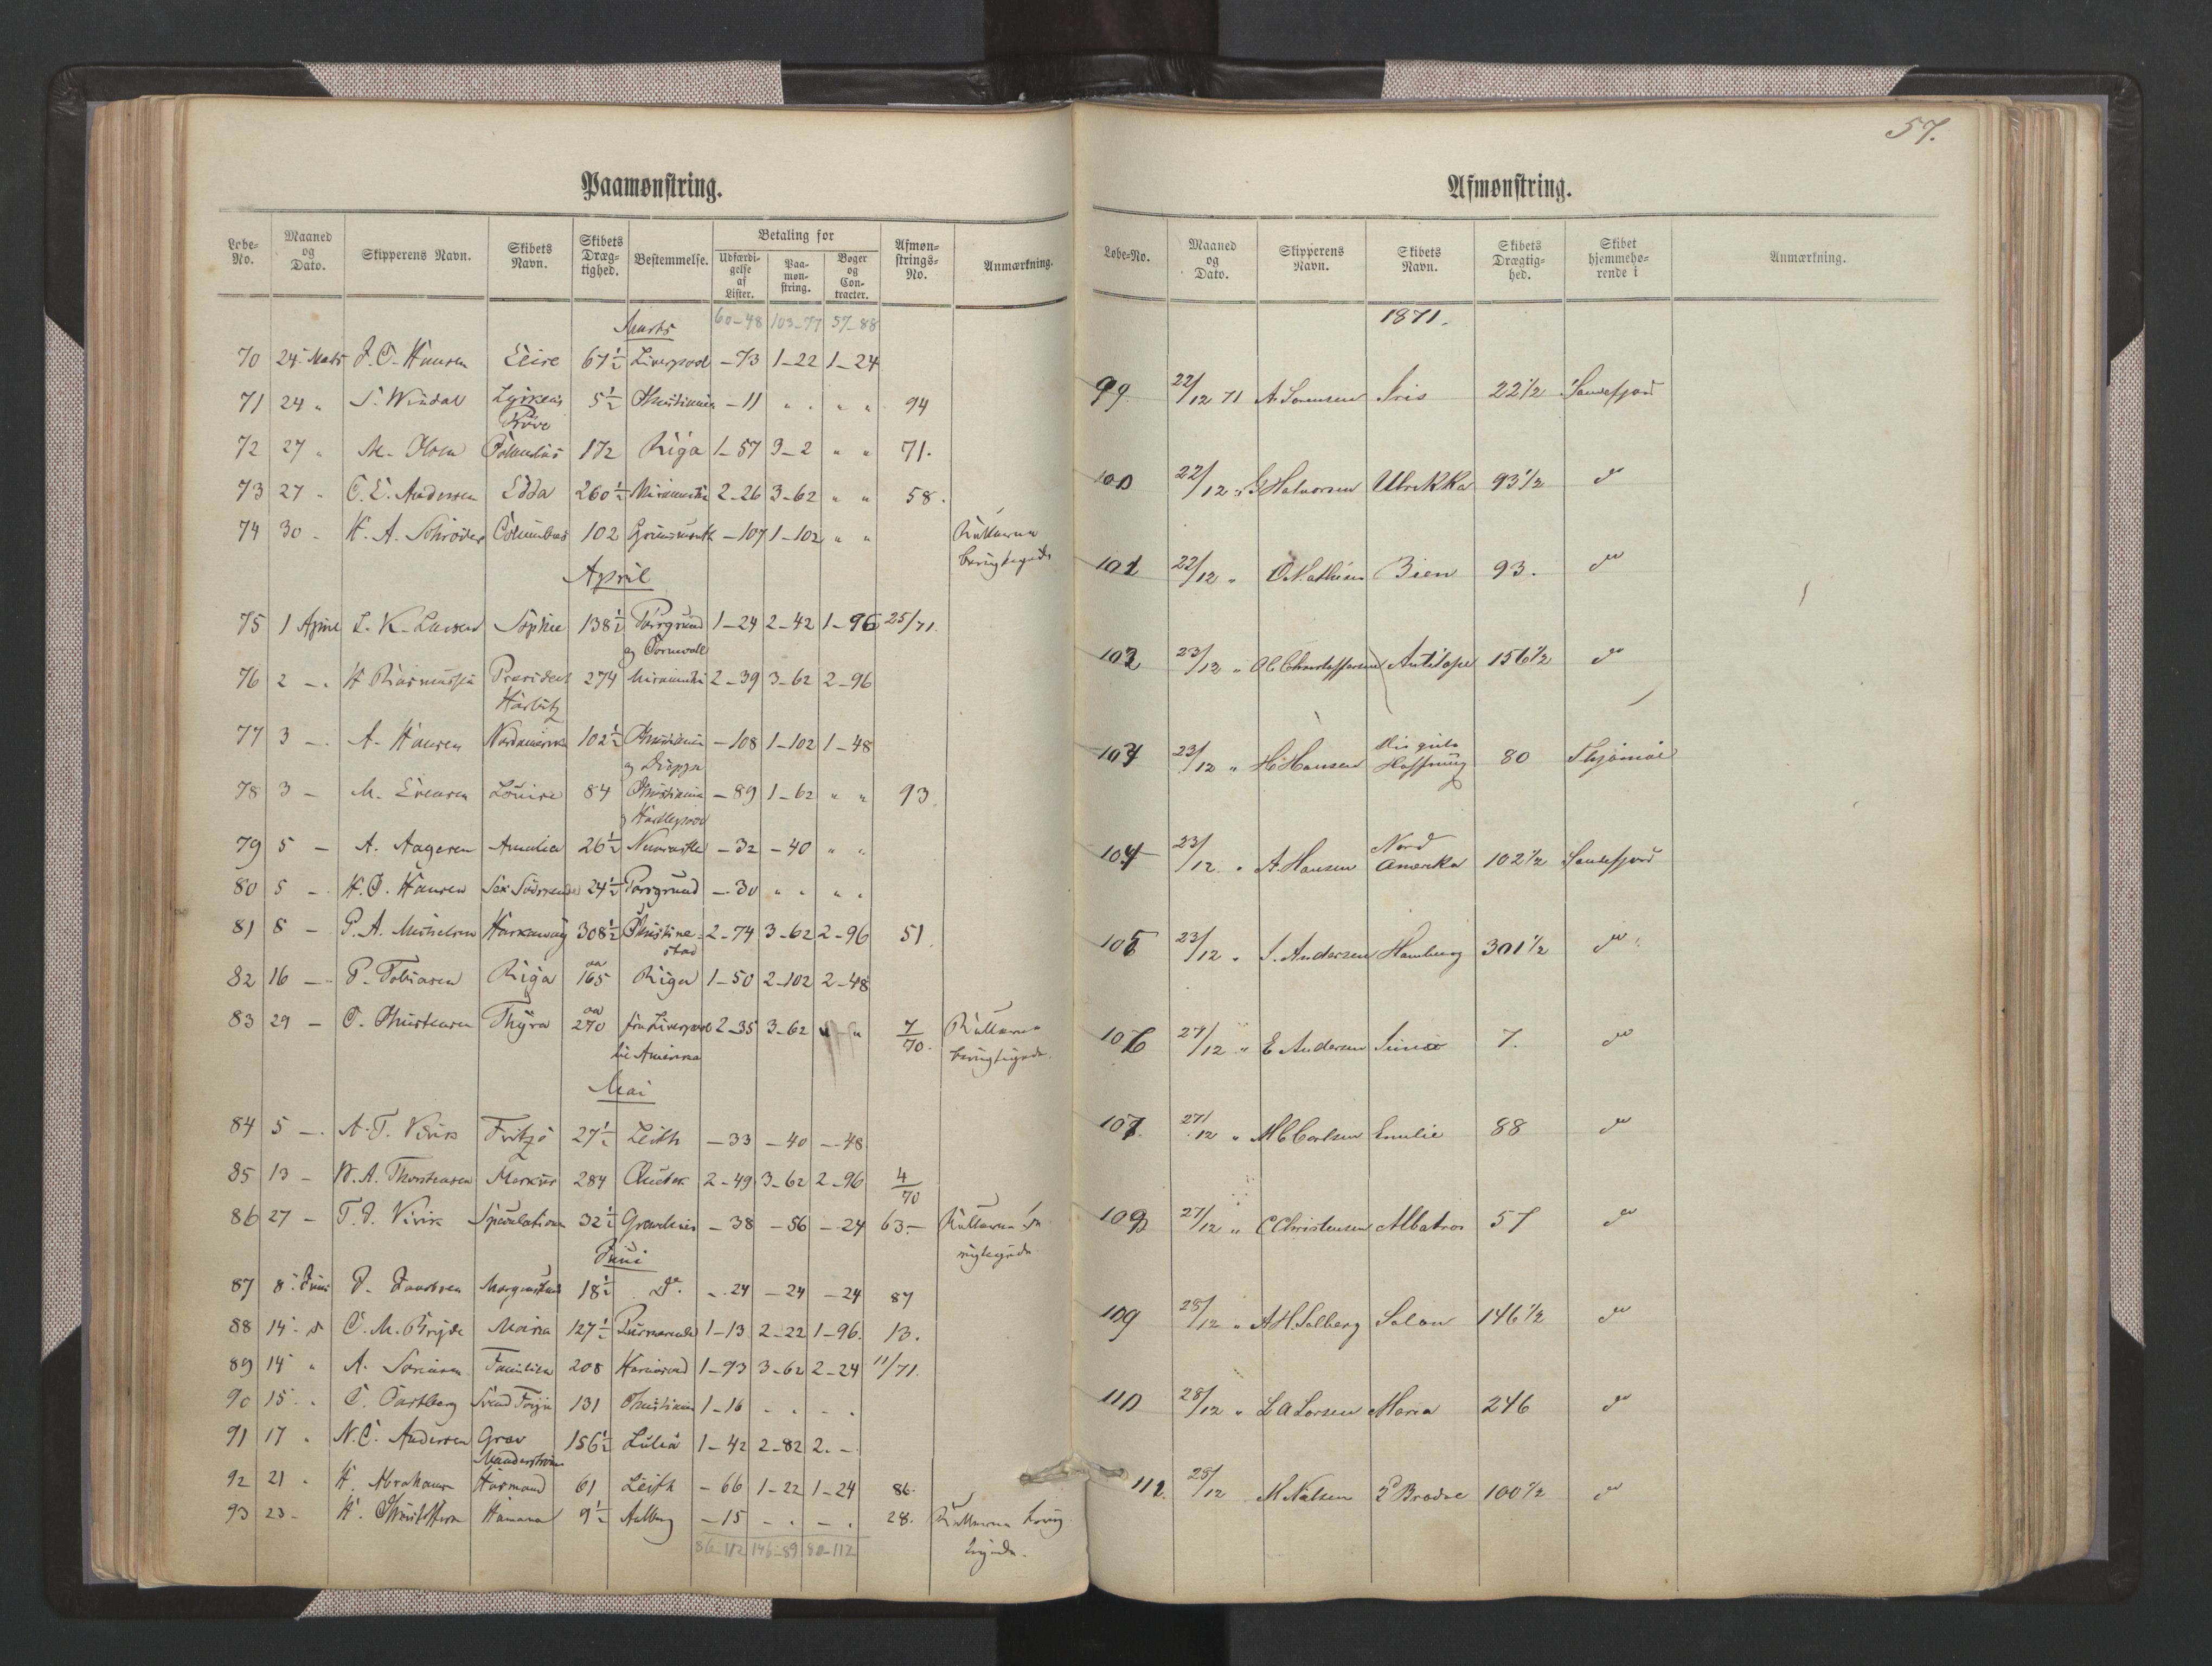 57.
Paamønstring.
Løbe-No. Maaned og Dato. Skipperens Navn. Skibets Navn. Skibets Dræg-tighed. Bestemmelse. Betaling for Udfærdi-gelse af Lister. Paa-møn-string. Bøger og Con-tracter. Afmøn-strings-No. Anmærkning.
Marts 60-48 103-77 57-88
70 24 Marts J. C. Hansen Elise 67 1/2 Liverpool -73 1-22 1-24
71 24 " S. Windal Lykkens 5 1/2 Christiania -11 " " " " 94
Prøve
72 27 " M. Olsen 172 Riga 1-57 3-2 " " 71.
73 27 - C. E. Andersen Edda 260 1/2 Miramichi 2-26 3-62 " " 58.
74 30 - H. A. Schrøder Columbus 102 Grimsmouth -107 1-102 " " Rullerne
berigtigede
April
75 1 April L. K. Larsen Sophie 138 1/2 Porsgrund 1-24 2-42 1-96 25/71.
og Cornwall
76 2 - H Rasmussen President 274 Miramichi 2-39 3-62 2-96
Harbitz
77 3 - A. Hansen Nordamerika 102 1/2 Christiania -108 1-102 1-48
og Dieppe
78 3 - M. Evensen Louise 84 Christiania -89 1-62 " " 93.
og Hartlepool
79 5 - A. Aagesen Amalia 26 1/2 Newcastle -32 -40 " "
80 5 - H. C. Hansen Sex Sødskende 24 1/2 Porsgrund -30 " " " "
81 8 - P. A. Michelsen Harkaway 308 1/2 Christine- 2-74 3-62 2-96 51.
stad
82 16 - P. Tobiasen Riga 165 Riga 1-50 2-102 2-48
83 29 - C. Christensen Thyra 270 fra Liverpool 2-35 3-62 " " 7/70. Rullerne
til Amerika berigtigede.
Mai
84 5 - A. T. Virik Fritzø 27 1/2 Leith -33 -40 -48
85 13 - W. A. Thorstensen Merkur 284 Quebek 2-49 3-62 2-96 4/70
86 27 - T. J. Virik Speculation 32 1/2 Gravelines -38 -56 -24 63.- Rullerne be-
rigtigede
Juni
87 8 Juni J. Jacobsen 18 1/2 Do. -24 -24 -24 87
88 14 - C. M. Bryde Maria 127 1/2 1-13 2-22 1-96. 13.
89 14 " A. Sørensen Familien 208 Harnøsand 1-93 3-62 2-24 11/71.
90 15 " C. Castberg Svend Foyn 131 Christiania 1-16 - - - -
91 17 " N. C. Andersen Grev 156 1/2 Luleå 1-42 2-82 2. -
Manderström
92 21 - H. Abrahamsen Haamand 61 Leith -66 1-22 1-24 86.
93 23 - H. Christoffersen 9 1/2 Aalborg -15 - - - - 28. Rullerne berig-
tigede.
86-112 146-89 80-112
Afmønstring.
Løbe-No. Maaned og Dato. Skipperens Navn. Skibets Navn. Skibets Drægtig-hed. Skibet hjemmehø-rende i Anmærkning.
1871.
99 22/12 71 A. Sørensen Iris 22 1/2 Sandefjord
100 22/12 " G Halvorsen Ulrikka 93 1/2 do
101 22/12 " O. Mathisen Bien 93. do
102 23/12 " O C Christoffersen Antilope 156 1/2 do
103 23/12 " H. Hansen Die gute Hoffnung 80 Thjømøe
104 23/12 " A. Hansen Nord Amerika 102 1/2 Sandefjord
105 23/12 " S. Andersen Hamburg 301 1/2 do
106 27/12 " E Andersen 7. do
107. 27/12 " M C Carlsen Emilie 88 do
108 27/12 " C Christensen Albatros 57 do
109 28/12 " A H. Solberg Solon 146 1/2 do
110 28/12 " L A Larsen Maria 246 do
111. 28/12 M Nielsen 2 Brødre 100 1/2 do